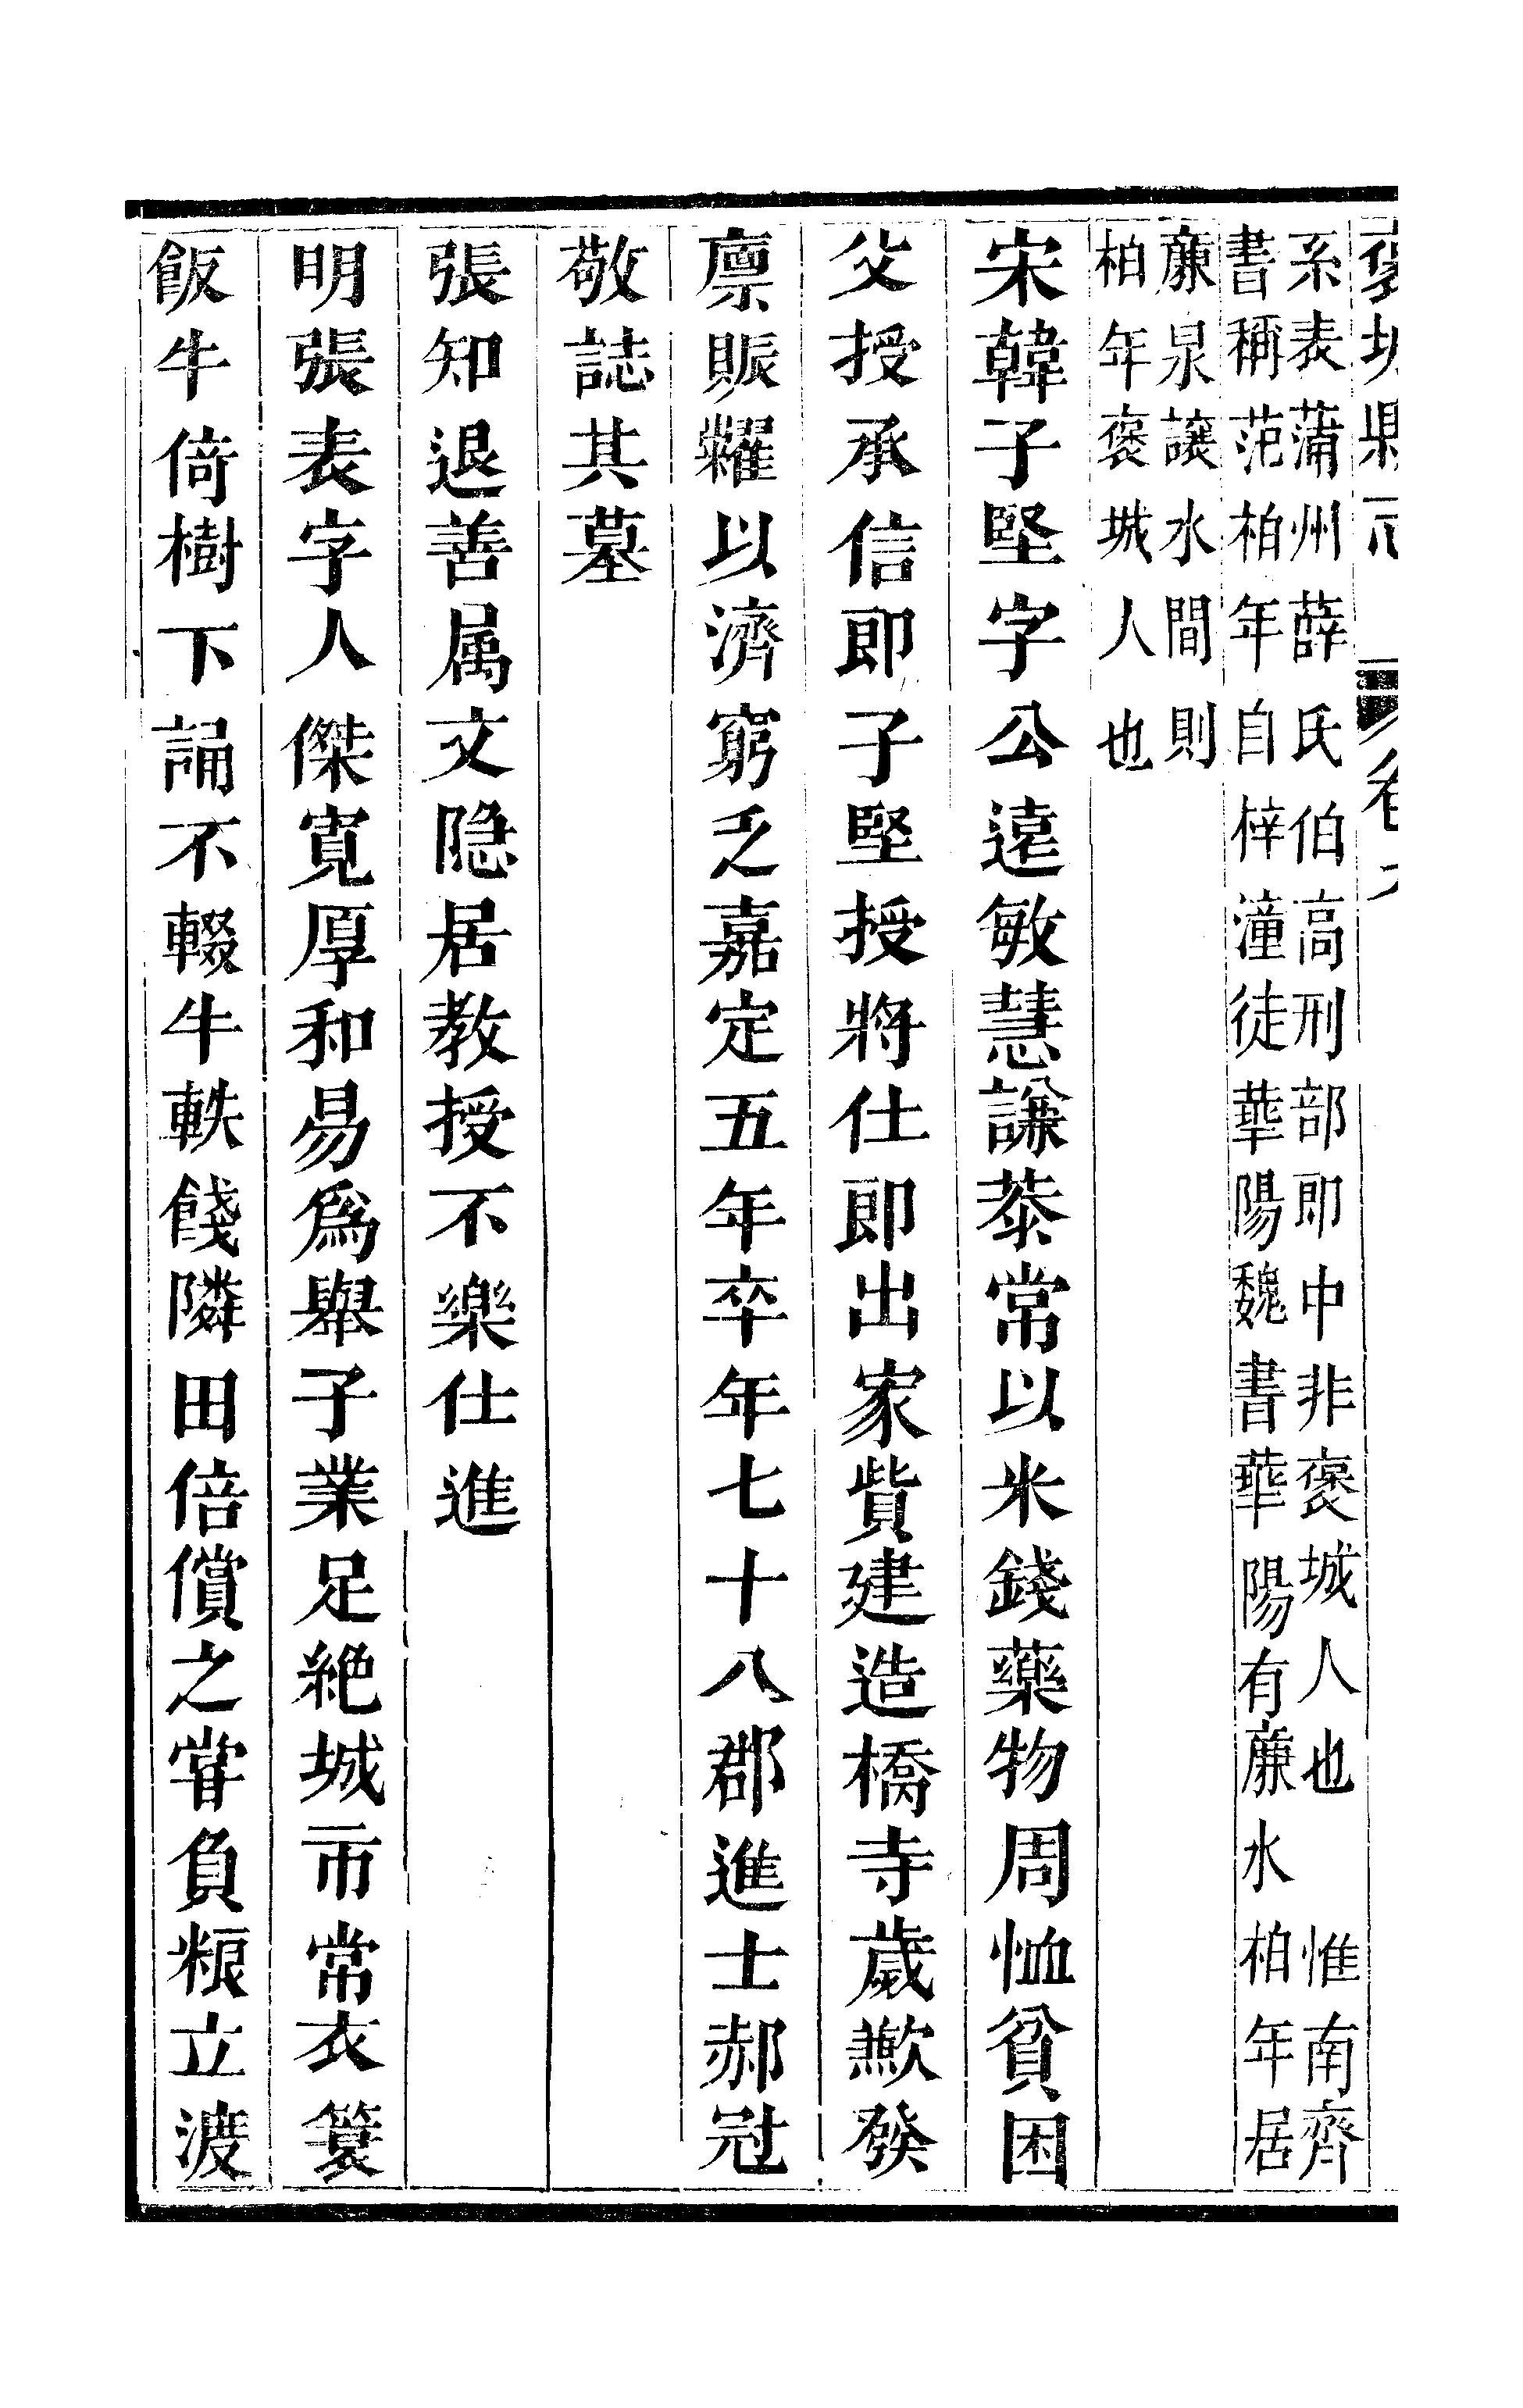 褒城縣志 卷
系表蒲州薛氏伯高刑部郎中非褒城人也 惟南齊
書稱范柏年自梓潼徒華陽魏書華陽有廉水柏年居
廉泉讓水間則
柏年褒城人也
宋韓子堅字公遠敏慧謙恭常以米錢藥物周恤貧困
父授承信即子堅授將仕即出家貲建造橋寺歲歉發
廩賑糶以濟窮乏嘉定五年卒年七十八郡進士郝冠
敬誌其墓
張知退善属文隐居教授不樂仕進
明張表字人傑寬厚和易爲舉子業足絶城市常衣簑
飯牛倚樹下誦不輟牛軼餞隣田倍償之甞負粮立渡